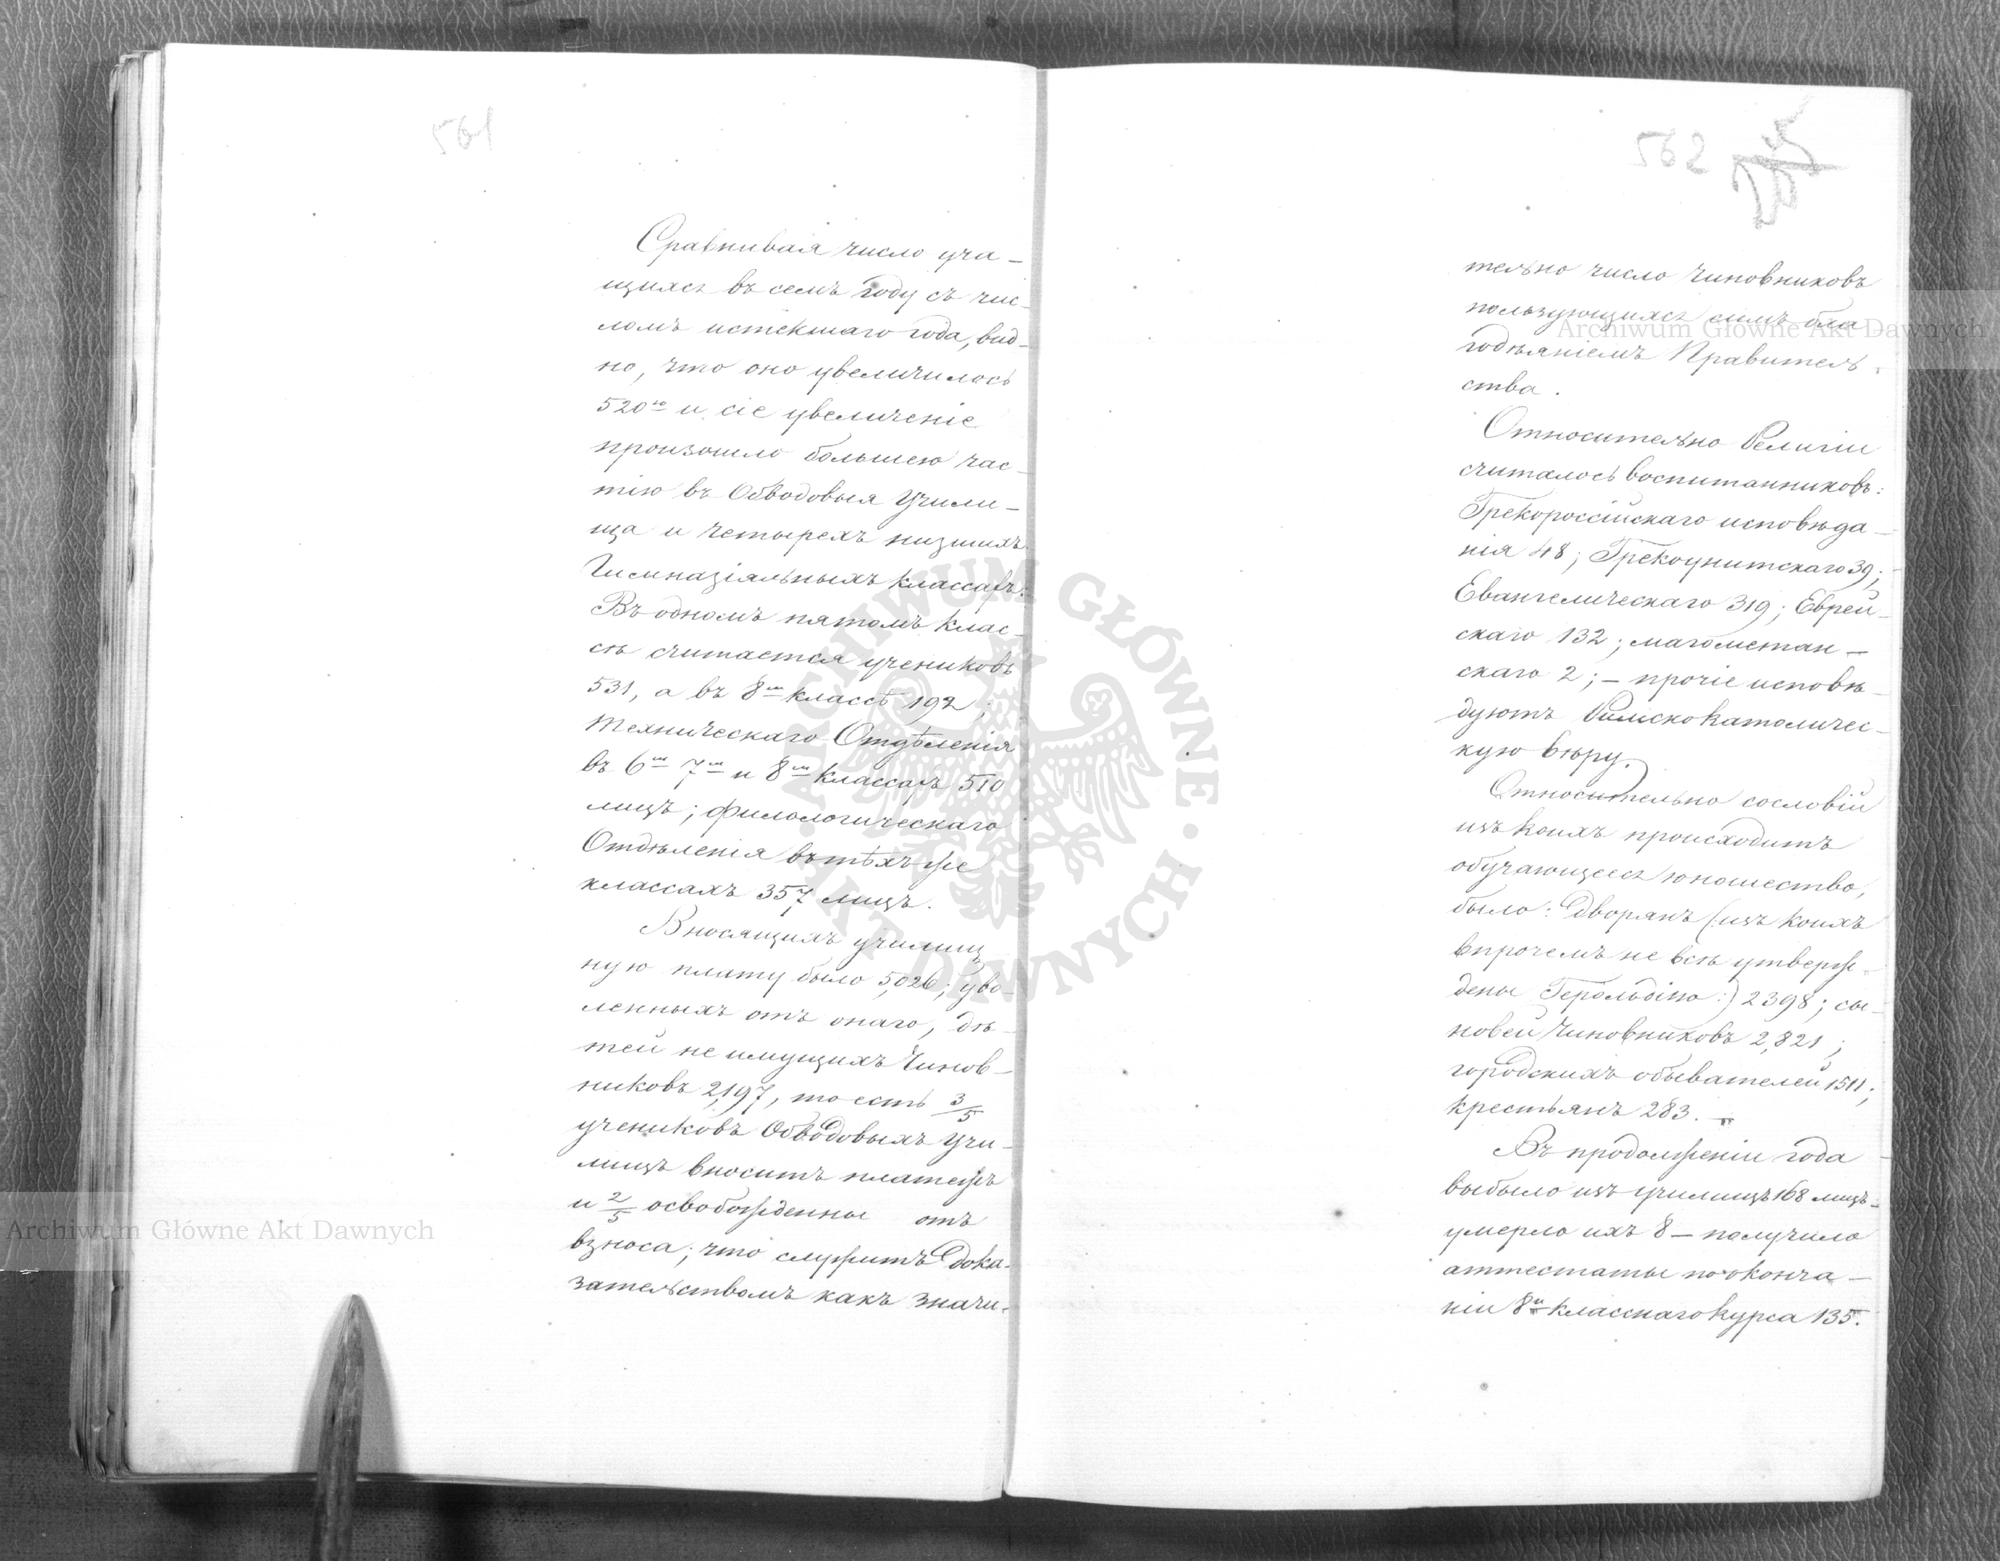 561
Сравнивая число уча-
щихся въ семъ году съ чис-
ломъ истекшаго года, вид-
но, что оно увеличилось
520ю и сіе увеличеніе
произошло большею час-
тію въ Обводовыя Учили-
ща и четырехъ низшихъ
Гимназіяльныхъ классахъ:
Въ одномъ пятомъ клас-
сѣ считается учениковъ
531, а въ 8мъ классѣ 192;
Техническаго Отдѣленія
въ 6мъ 7мъ и 8мъ классахъ 510
лицъ; филологическаго
Отдѣленія въ тѣхъ же
классахъ 357 лицъ.
Вносящихъ училищ
ную плату было 5,026; уво-
ленныхъ отъ онаго, дѣ-
тей не имущихъ Чинов-
никовъ 2,197, то есть 3/5
учениковъ Обводовыхъ Учи-
лищъ вноситъ платежъ
и 2/5 освобожденны отъ
взноса; что служитъ дока-
зательствомъ какъ значи-
562
тельно число Чиновниковъ
пользующихся симъ бла-
годѣяніемъ Правитель-
ства.
Относительно Религіи
считалось воспитанниковъ:
Грекороссійскаго исповѣда-
нія 48; Грекоунитскаго 39;
Евангелическаго 319; Еврей-
скаго 132; магометан-
скаго 2; - прочіе исповѣ-
дуютъ Римскокатоличес-
кую вѣру.
Относительно сословій
изъ коихъ происходитъ
обучающееся юношество,
было: Дворянъ (изъ коихъ
впрочемъ не всѣ утверж-
дены Герольдіею:) 2398; сы-
новей Чиновниковъ 2,821;
городскихъ обывателей 1511;
крестьянъ 283. -
Въ продолженіи года
выбыло изъ училищъ 168 лицъ-
умерло ихъ 8 - получило
аттестаты по оконча-
ніи 8и класснаго курса 135.
Archiwum Główne Akt Dawnych
Archiwum Główne Akt Dawnych
ARCHIWUM GŁÓWNE · AKT DAWNYCH ·